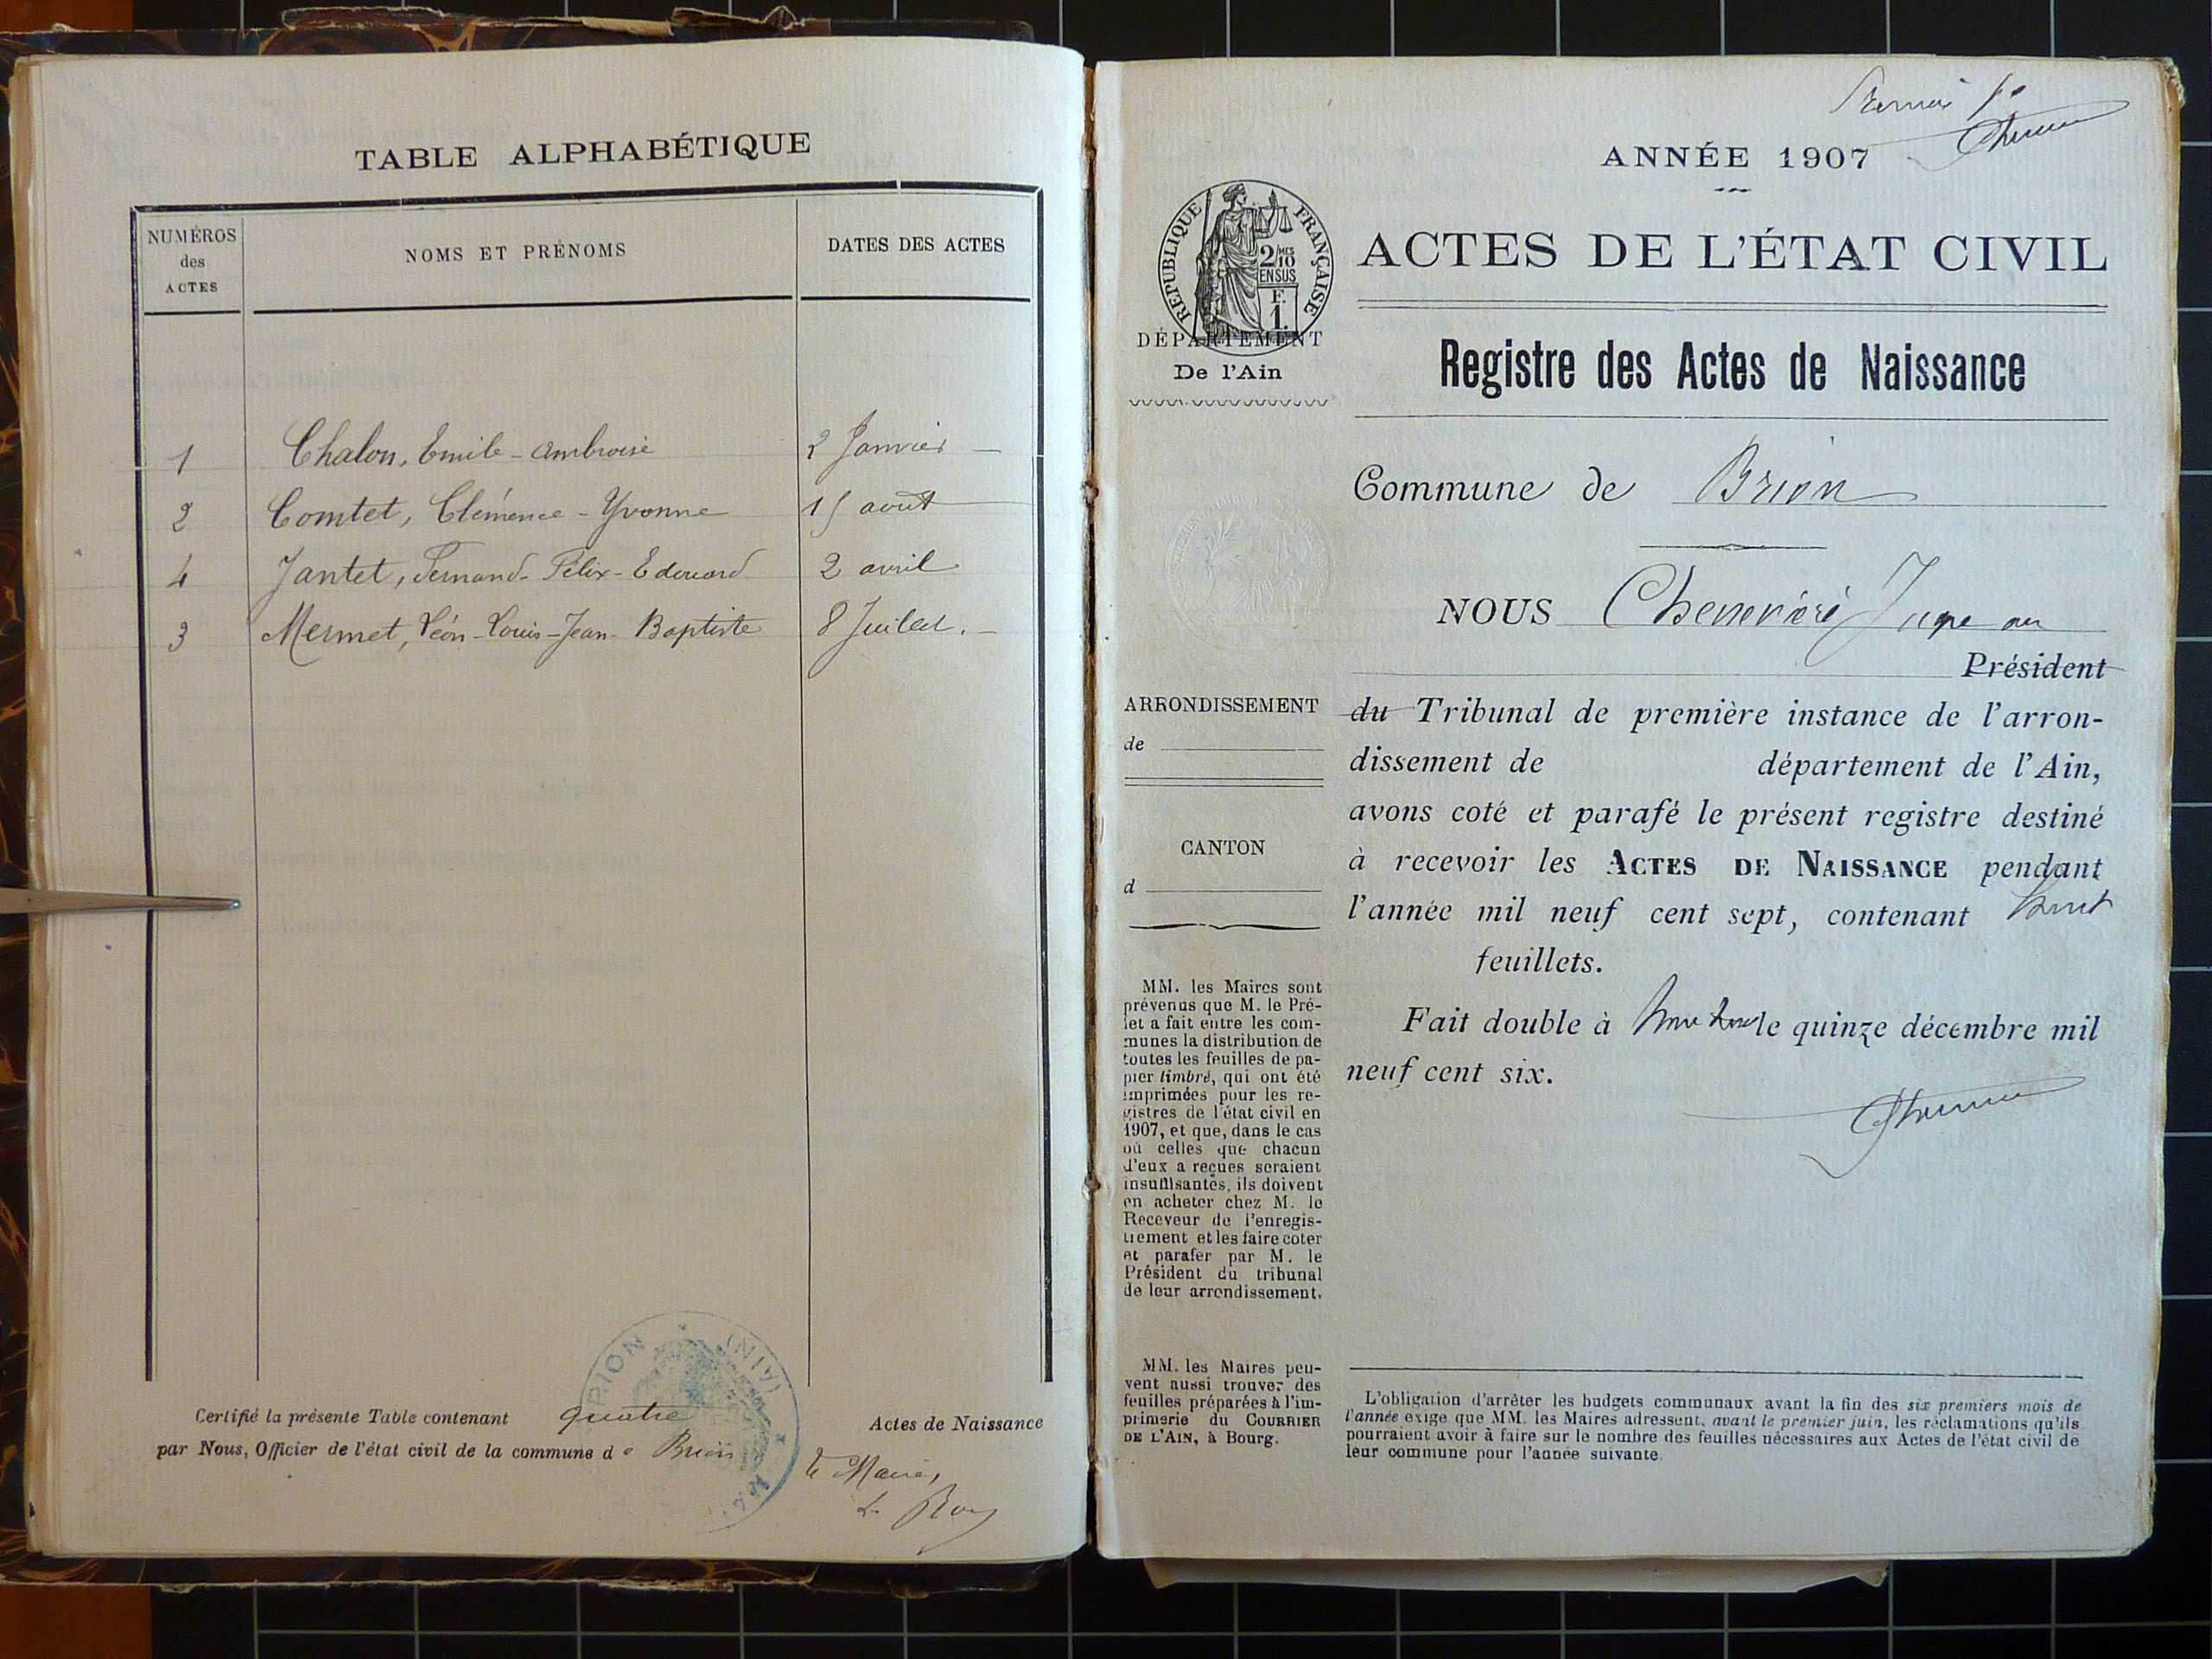 TABLE ALPHABÉTIQUE
NUMÉROS des ACTES
NOMS ET PRÉNOMS
DATES DES ACTES
1 Chalon, Emile-Ambroise 2 Janvier
2 Comtet, Clémence-Yvonne 15 août
4 Jantet, Fernand-Félix-Edouard 2 avril
3 Mermet, Léon-Louis-Jean-Baptiste 8 Juillet.
Certifié la présente Table contenant quatre Actes de Naissance
par Nous, Officier de l'état civil de la commune de Brion
Le Maire,
BRION (AIN)
ANNÉE 1907
RÉPUBLIQUE FRANÇAISE
2/10 MES
EN SUS
F. 1.
DÉPARTEMENT
De l'Ain
ACTES DE L'ÉTAT CIVIL
Registre des Actes de Naissance
Commune de Brion
NOUS Chenevière Juge au
Président
du Tribunal de première instance de l'arron-
dissement de département de l'Ain,
avons coté et parafé le présent registre destiné
à recevoir les ACTES DE NAISSANCE pendant
l'année mil neuf cent sept, contenant huit
feuillets.
Fait double à le quinze décembre mil
neuf cent six.
ARRONDISSEMENT
de
CANTON
d
MM. les Maires sont
prévenus que M. le Pré-
fet a fait entre les com-
munes la distribution de
toutes les feuilles de pa-
pier timbré, qui ont été
imprimées pour les re-
gistres de l'état civil en
1907, et que, dans le cas
où celles que chacun
d'eux a reçues seraient
insuffisantes, ils doivent
en acheter chez M. le
Receveur de l'enregis-
trement et les faire coter
et parafer par M. le
Président du tribunal
de leur arrondissement.
MM. les Maires peu-
vent aussi trouver des
feuilles préparées à l'im-
primerie du COURRIER
DE L'AIN, à Bourg.
L'obligation d'arrêter les budgets communaux avant la fin des six premiers mois de
l'année exige que MM. les Maires adressent, avant le premier juin, les réclamations qu'ils
pourraient avoir à faire sur le nombre des feuilles nécessaires aux Actes de l'état civil de
leur commune pour l'année suivante.